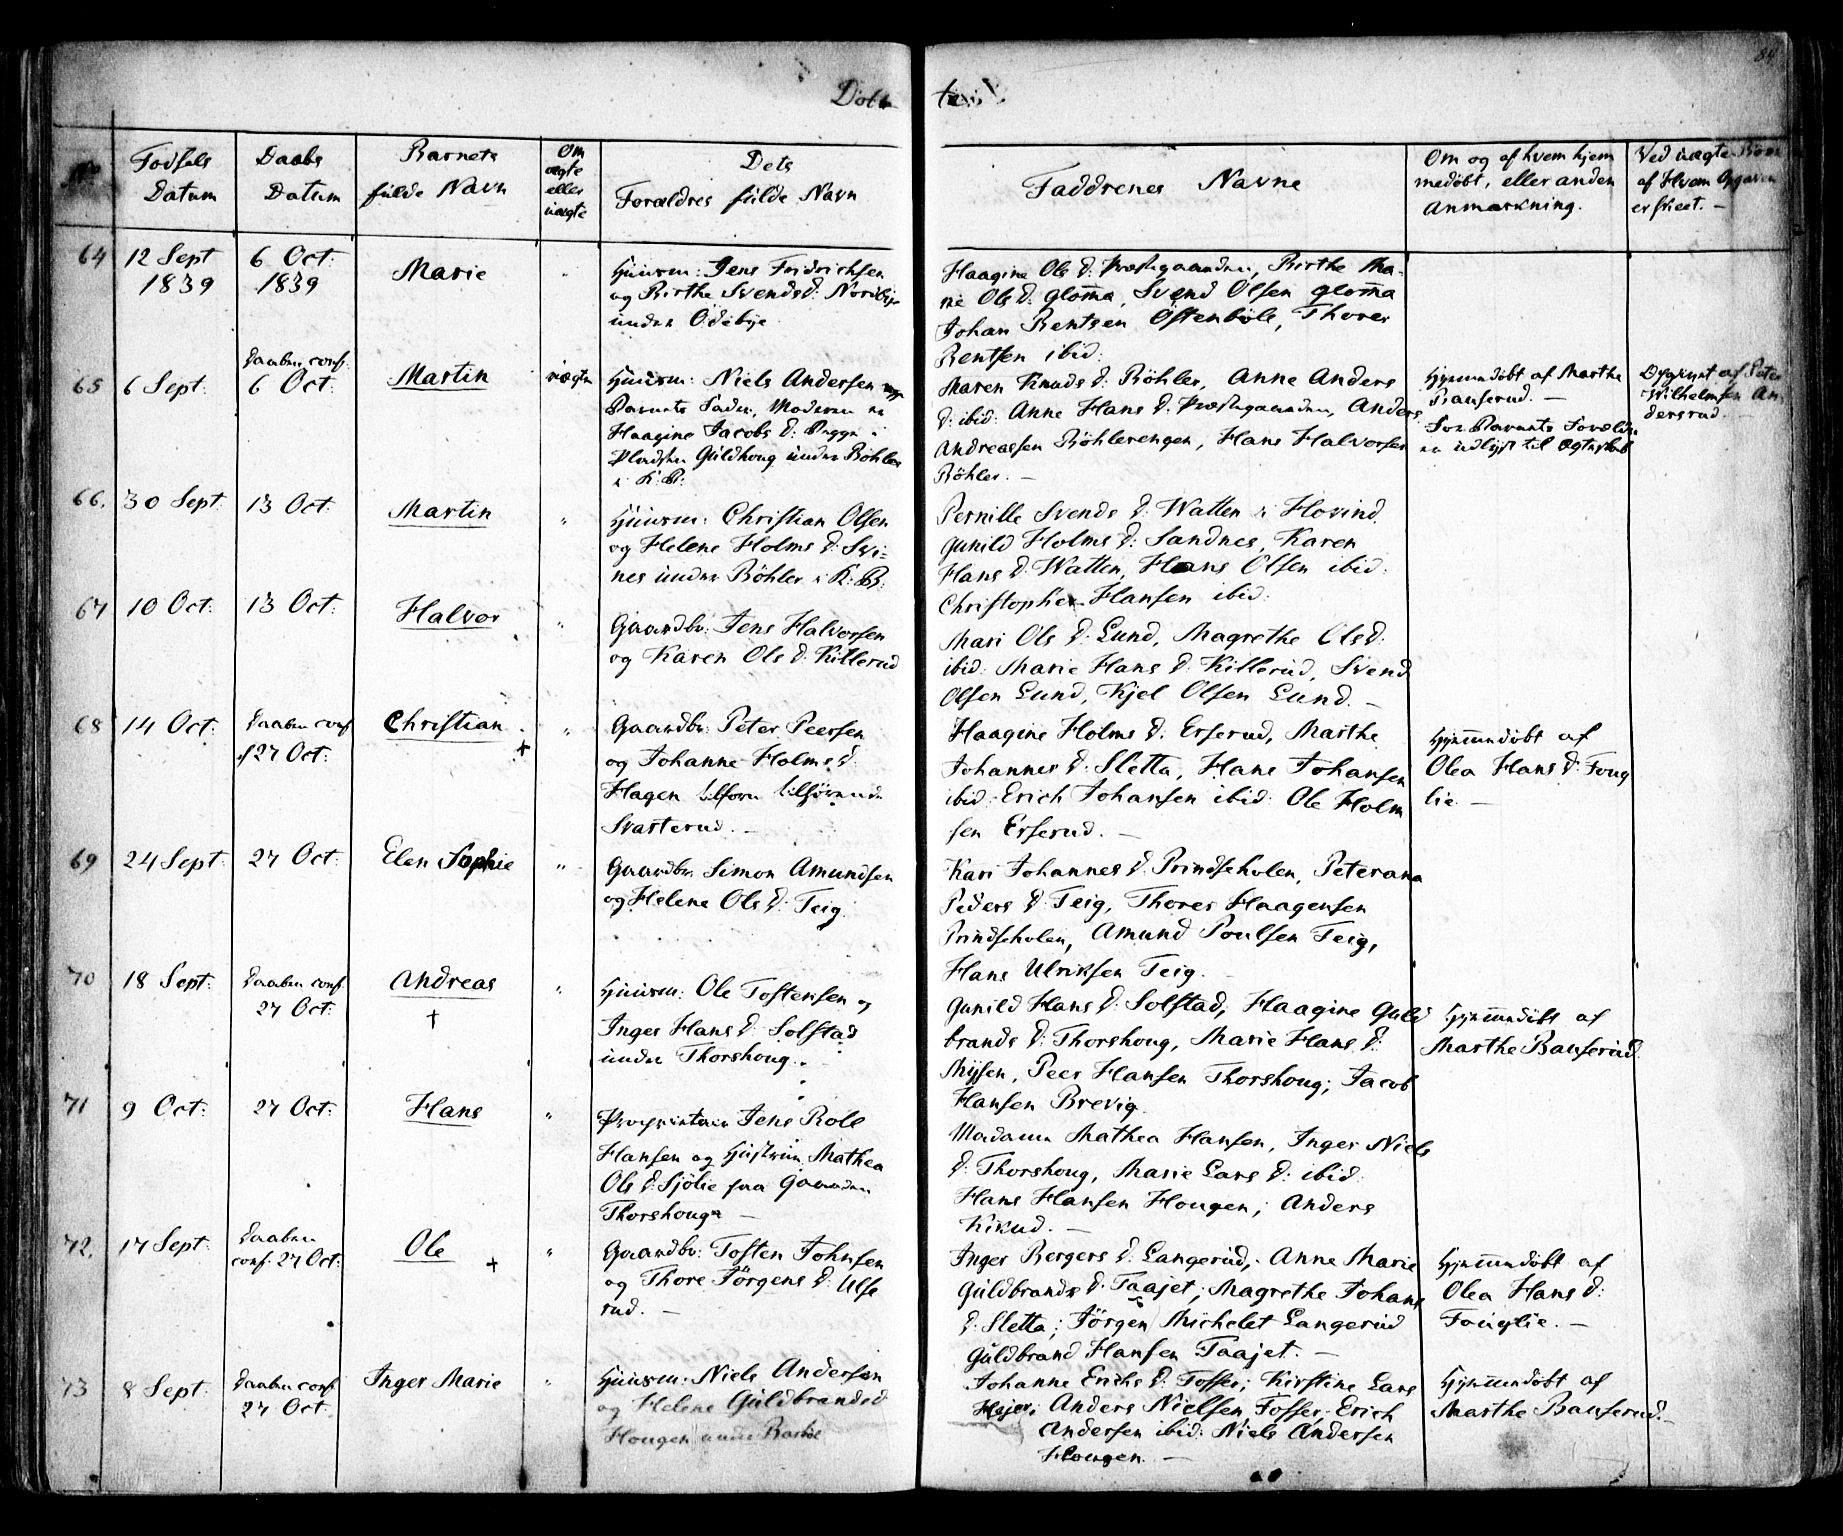 84
Døbte
No
Fødsels
Datum
Daabs
Datum
Barnets
fulde Navn
Om
ægte
eller
uægte
Dets
Forældres fulde Navn
Faddrenes Navne
Om og af hvem hjem
medøbt, eller anden
Anmærkning.
Ved uægte Børn
af Hvem Opgaven
er skeet. –
64
12 Sept
1839
6 Oct:
1839
Marie
"
Huusm: Jens Fridrichsen
og Birthe Svends d:
under Ödebye
Haagine Ols d: Præstegaarden, Birthe Ma-
rie Ols d: Glom̄a, Svend Olsen Glom̄a
Johan Bentsen Östenböle, Thorer
Bentsen ibid:
65
6 Sept:
Daaben conf.
6 Oct:
Martin
uægte
Huusm: Niels Andersen
Barnets Fader, Moderen er
Haagine Jacobs d:
Pladsen Guldhoug under Böhler
i K: B:
Maren Knuds d: Böhler, Anne Anders
d: ibid: Anne Hans d: Præstegaarden, Anders
Andreassen Böhlerengen, Hans Halvorsen
Böhler. –
Hjemmedöbt af Marthe
Bauserud. –
For Barnets Forældre
er udlyst til Ægteskab
af Peter
Wilhelmsen An-
dersrud.
66.
30 Sept
13 Oct:
Martin
"
Huusm: Christian Olsen
og Helene Holms d: Svi-
nes under Böhler i K: B:
Pernille Svends d: Watten i Hovind
Gunild Holms d: Sandnes, Karen
Hans d: Watten, Hans Olsen ibid:
Christopher Hansen ibid:
67
10 Oct:
13 Oct:
Halvor
"
Gaardbr: Jens Halvorsen
og Karen Ols d: Killerud
Mari Ols d: Lund, Magrethe Ols d:
ibid: Marie Hans d: Killerud, Svend
Olsen Lund, Kjel Olsen Lund. –
68
14 Oct:
Daaben conf
27 Oct:
Christian
+
"
Gaardbr: Peter Peersen
og Johanne Holms d:
Hagen tilforn
Svarterud. –
Haagine Holms d: Erserud, Marthe
Johannes d: Sletta, Hans Johansen
ibid: Erich Johansen ibid: Ole Holm
sen Erserud. –
Hjemmedöbt af
Olea Hans d: Foug
lie. –
69
24 Sept:
27 Oct:
Elen Sophie
"
Gaardbr. Simon Amundsen
og Helene Ols d: Teig.
Kari Johannes d: Prindseholen, Peterana
Peders d: Teig, Thorer Haagensen
Prindseholen, Amund Poulsen Teig,
Hans Ulriksen Teig. –
70
18 Sept:
Daaben conf.
27 Oct:
Andreas
+
"
Huusm: Ole Tostensen og
Inger Hans d: Solstad
under Thorshoug. –
Gunild Hans d: Solstad, Haagine Guld
brands d: Thorshoug, Marie Hans d:
Mysen, Peer Hansen Thorshoug; Jacob
Hansen Brevig.
Hjemmedöbt af
Marthe Bauserud.
71
9 Oct:
27 Oct:
Hans
"
Proprietair Jens Roll
Hansen og Hustrue Mathea
Ols d: Sjölie paa Gaarden
Thorshoug –
Madame Mathea Hansen, Inger Niels
d: Thorshoug, Marie Lars d: ibid:
Hans Hansen Hougen; Anders
Kikud. –
72.
17 Sept:
Daaben
conf. 27 Oct:
Ole
+
"
Gaardbr: Tosten Johnsen
og Thore Jörgens d: Ulse
rud. –
Inger Bergers d: Langerud, Anne Marie
Guldbrands d: Taajet; Magrethe Johans
d: Sletta; Jörgen Michelet Langerud
Guldbrand Hansen Taajet. –
Hjemmedöbt af
Olea Hans d:
Fouglie. –
73
8 Sept:
Daaben conf
27 Oct.
Inger Marie
"
Huusm: Niels Andersen
og Helene Guldbrandsd
Hougen under
Johanne Erichs d: Fosser; Kirstine Lars
Anders Nielsen Fosser, Erich
Andersen ibid: Niels Andersen
Hougen. –
Hjemmedöbt af
Marthe Bauserud. –